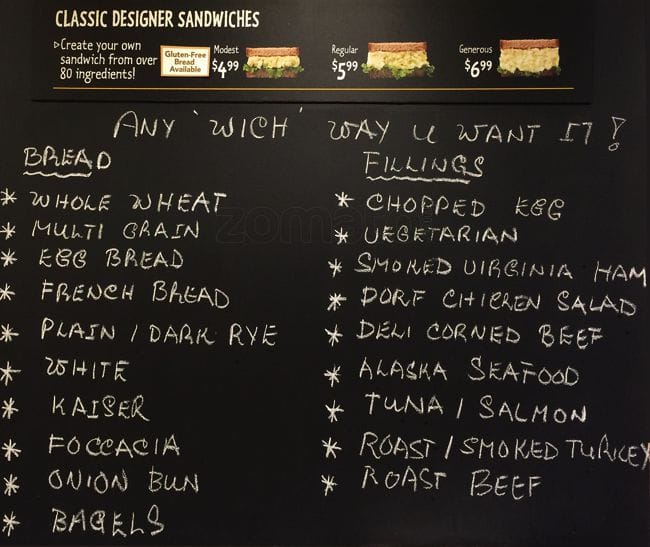 CLASSIC DESIGNER SANDWICHES
▹Create your own
sandwich from over
80 ingredients!
Gluten-Free
Bread
Available
Modest
$4.99
Regular
$5.99
Generous
$6.99
ANY 'WICH' WAY U WANT IT!
BREAD
* WHOLE WHEAT
* MULTI GRAIN
* EGG BREAD
* FRENCH BREAD
* PLAIN / DARK RYE
* WHITE
* KAISER
* FOCCACIA
* ONION BUN
* BAGELS
FILLINGS
* CHOPPED EGG
* VEGETARIAN
* SMOKED VIRGINIA HAM
* DORF CHICKEN SALAD
* DELI CORNED BEEF
* ALASKA SEAFOOD
* TUNA / SALMON
* ROAST / SMOKED TURKEY
* ROAST BEEF